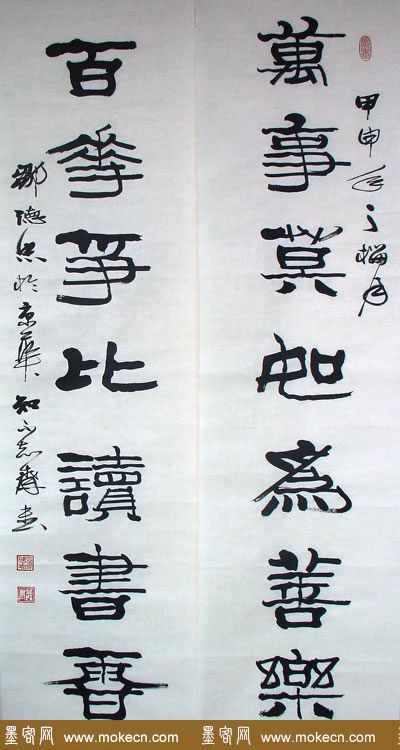 甲申年之榴月
萬事莫如為善樂
百花爭比讀書香
鄒德忠於京華知不足齋書
墨客网 www.mokecn.com 墨客网 www.mokecn.com